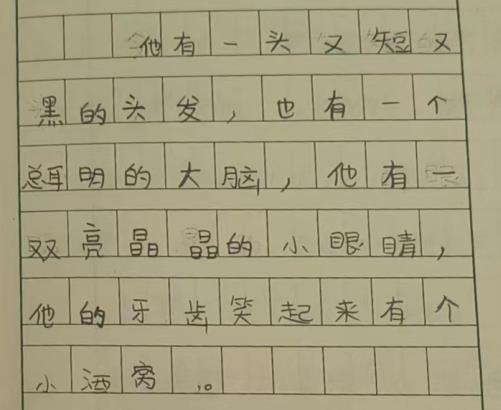 他有一头又短又
黑的头发，也有一个
聪明的大脑，他有一
双亮晶晶的小眼睛，
他的牙齿笑起来有个
小酒窝。